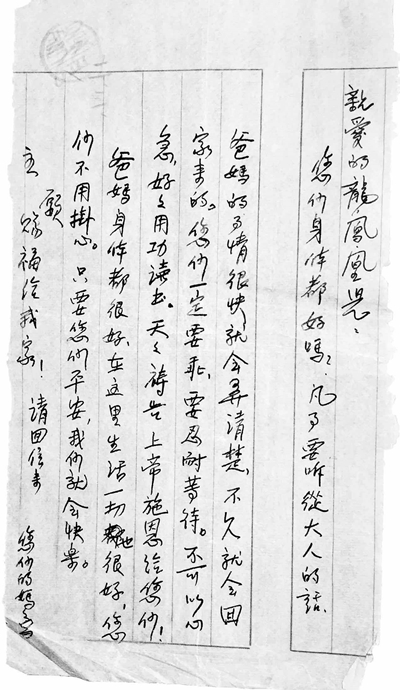 親愛的龍鳳凰兒、
您们身体都好嗎？凡事要听從大人的話
爸媽的事情很快就会弄清楚，不久就会回
家来的。您们一定要乖，要忍耐等待。不可以心
急，好々用功讀书。天々祷告上帝施恩给您们！
爸媽身体都很好，在这里生活一切也很好，您
们不用掛心。只要您们平安，我们就会快樂。
願
主赐福给我家！ 请回信来 您们的媽